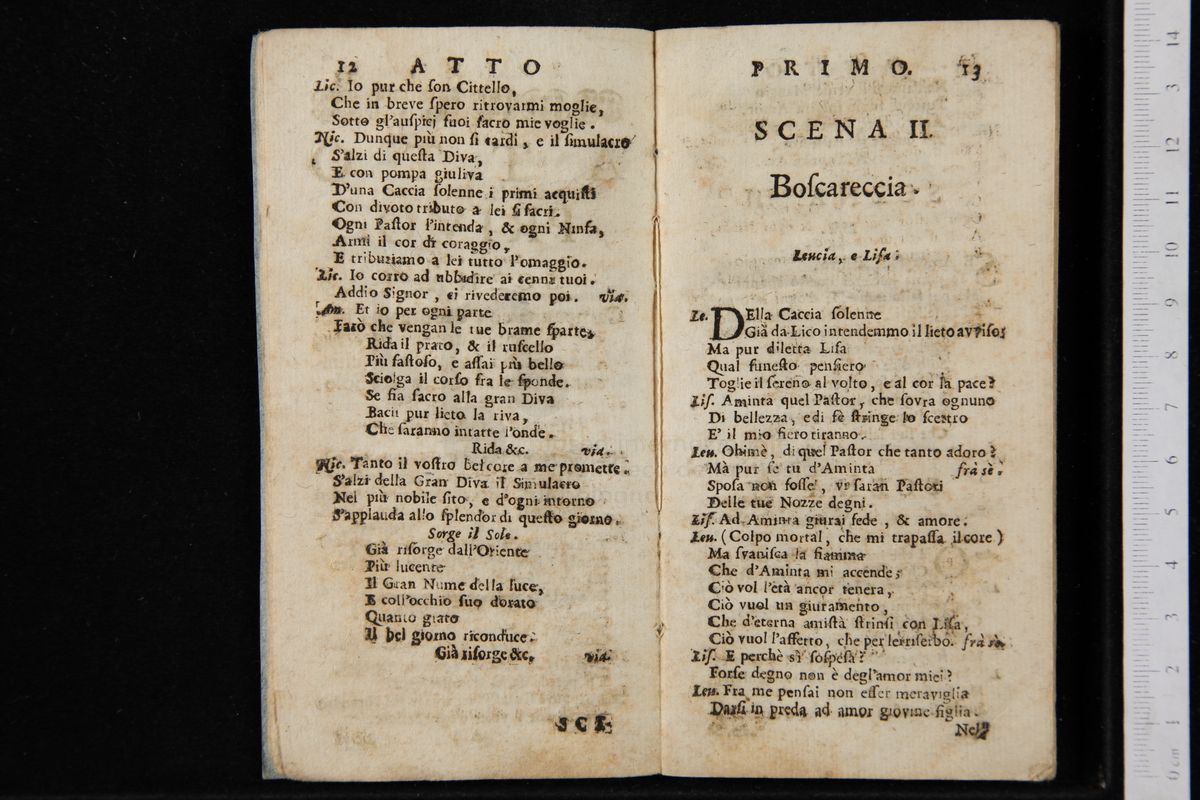 12 ATTO
Lic. Io pur che son Cittello,
Che in breve spero ritrovarmi moglie,
Sotto gl'auspicj suoi sacro mie voglie.
Nic. Dunque più non si tardi, e il simulacro
S'alzi di questa Diva,
E con pompa giuliva
D'una Caccia solenne i primi acquisti
Con divoto tributo a lei si sacri.
Ogni Pastor l'intenda, & ogni Ninfa,
Armi il cor di coraggio,
E tributiamo a lei tutto l'omaggio.
Lic. Io corro ad ubbidire ai cenni tuoi.
Addio Signor, ci rivederemo poi. via.
Am. Et io per ogni parte
Farò che vengan le tue brame sparte,
Rida il prato, & il ruscello
Più fastoso, e assai più bello
Sciolga il corso fra le sponde.
Se sia sacro alla gran Diva
Baci pur lieto la riva,
Che saranno intatte l'onde.
Rida &c. via.
Nic. Tanto il vostro bel core a me promette.
S'alzi della Gran Diva il Simulacro
Nel più nobile sito, e d'ogni intorno
S'applauda allo splendor di questo giorno.
Sorge il Sole.
Già risorge dall'Oriente
Più lucente
Il Gran Nume della luce,
E coll'occhio suo dorato
Quanto grato
Il bel giorno riconduce.
Già risorge &c. via.
SCE-
PRIMO. 13
SCENA II.
Boscareccia.
Leucia, e Lisa.
Le. DElla Caccia solenne
Già da Lico intendemmo il lieto avviso;
Ma pur diletta Lisa
Qual funesto pensiero
Toglie il sereno al volto, e al cor la pace?
Lis. Aminta quel Pastor, che sovra ognuno
Di bellezza, e di fè stringe lo scettro
E' il mio fiero tiranno.
Leu. Ohimè, di quel Pastor che tanto adoro?
Mà pur se tu d'Aminta frà sè.
Sposa non fosse, vi saran Pastori
Delle tue Nozze degni.
Lis. Ad Aminta giurai fede, & amore.
Leu. (Colpo mortal, che mi trapassa il core)
Ma svanisca la fiamma
Che d'Aminta mi accende;
Ciò vol l'età ancor tenera,
Ciò vuol un giuramento,
Che d'eterna amistà strinsi con Lisa,
Ciò vuol l'affetto, che per lei riserbo. frà sè.
Lis. E perchè sì sospesa?
Forse degno non è degl'amor miei?
Leu. Fra me pensai non esser meraviglia
Darsi in preda ad amor giovine figlia.
Nel